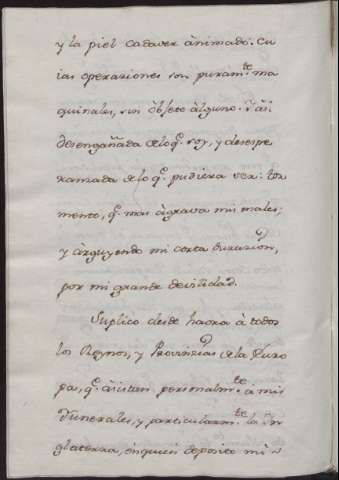 y la piel cadaver ànimado. Cu
ias operaziones son puram.te ma
quinales, sin óbjeto àlguno. Y aśi
desengañada de lo q.e soy, y desespe
ranzada de lo q.e pudiera ser: tor
mento, q.e mas àgrava mis males;
y àrguyendo mi corta durazion,
por mi grande devilidad.
Suplico desde haora à todos
los Reynos, y Provinzias de la Euro
pa, q.e asistan personalm.te à mis
Funerales, y particularm.te la In
glaterra, en quien deposito mi